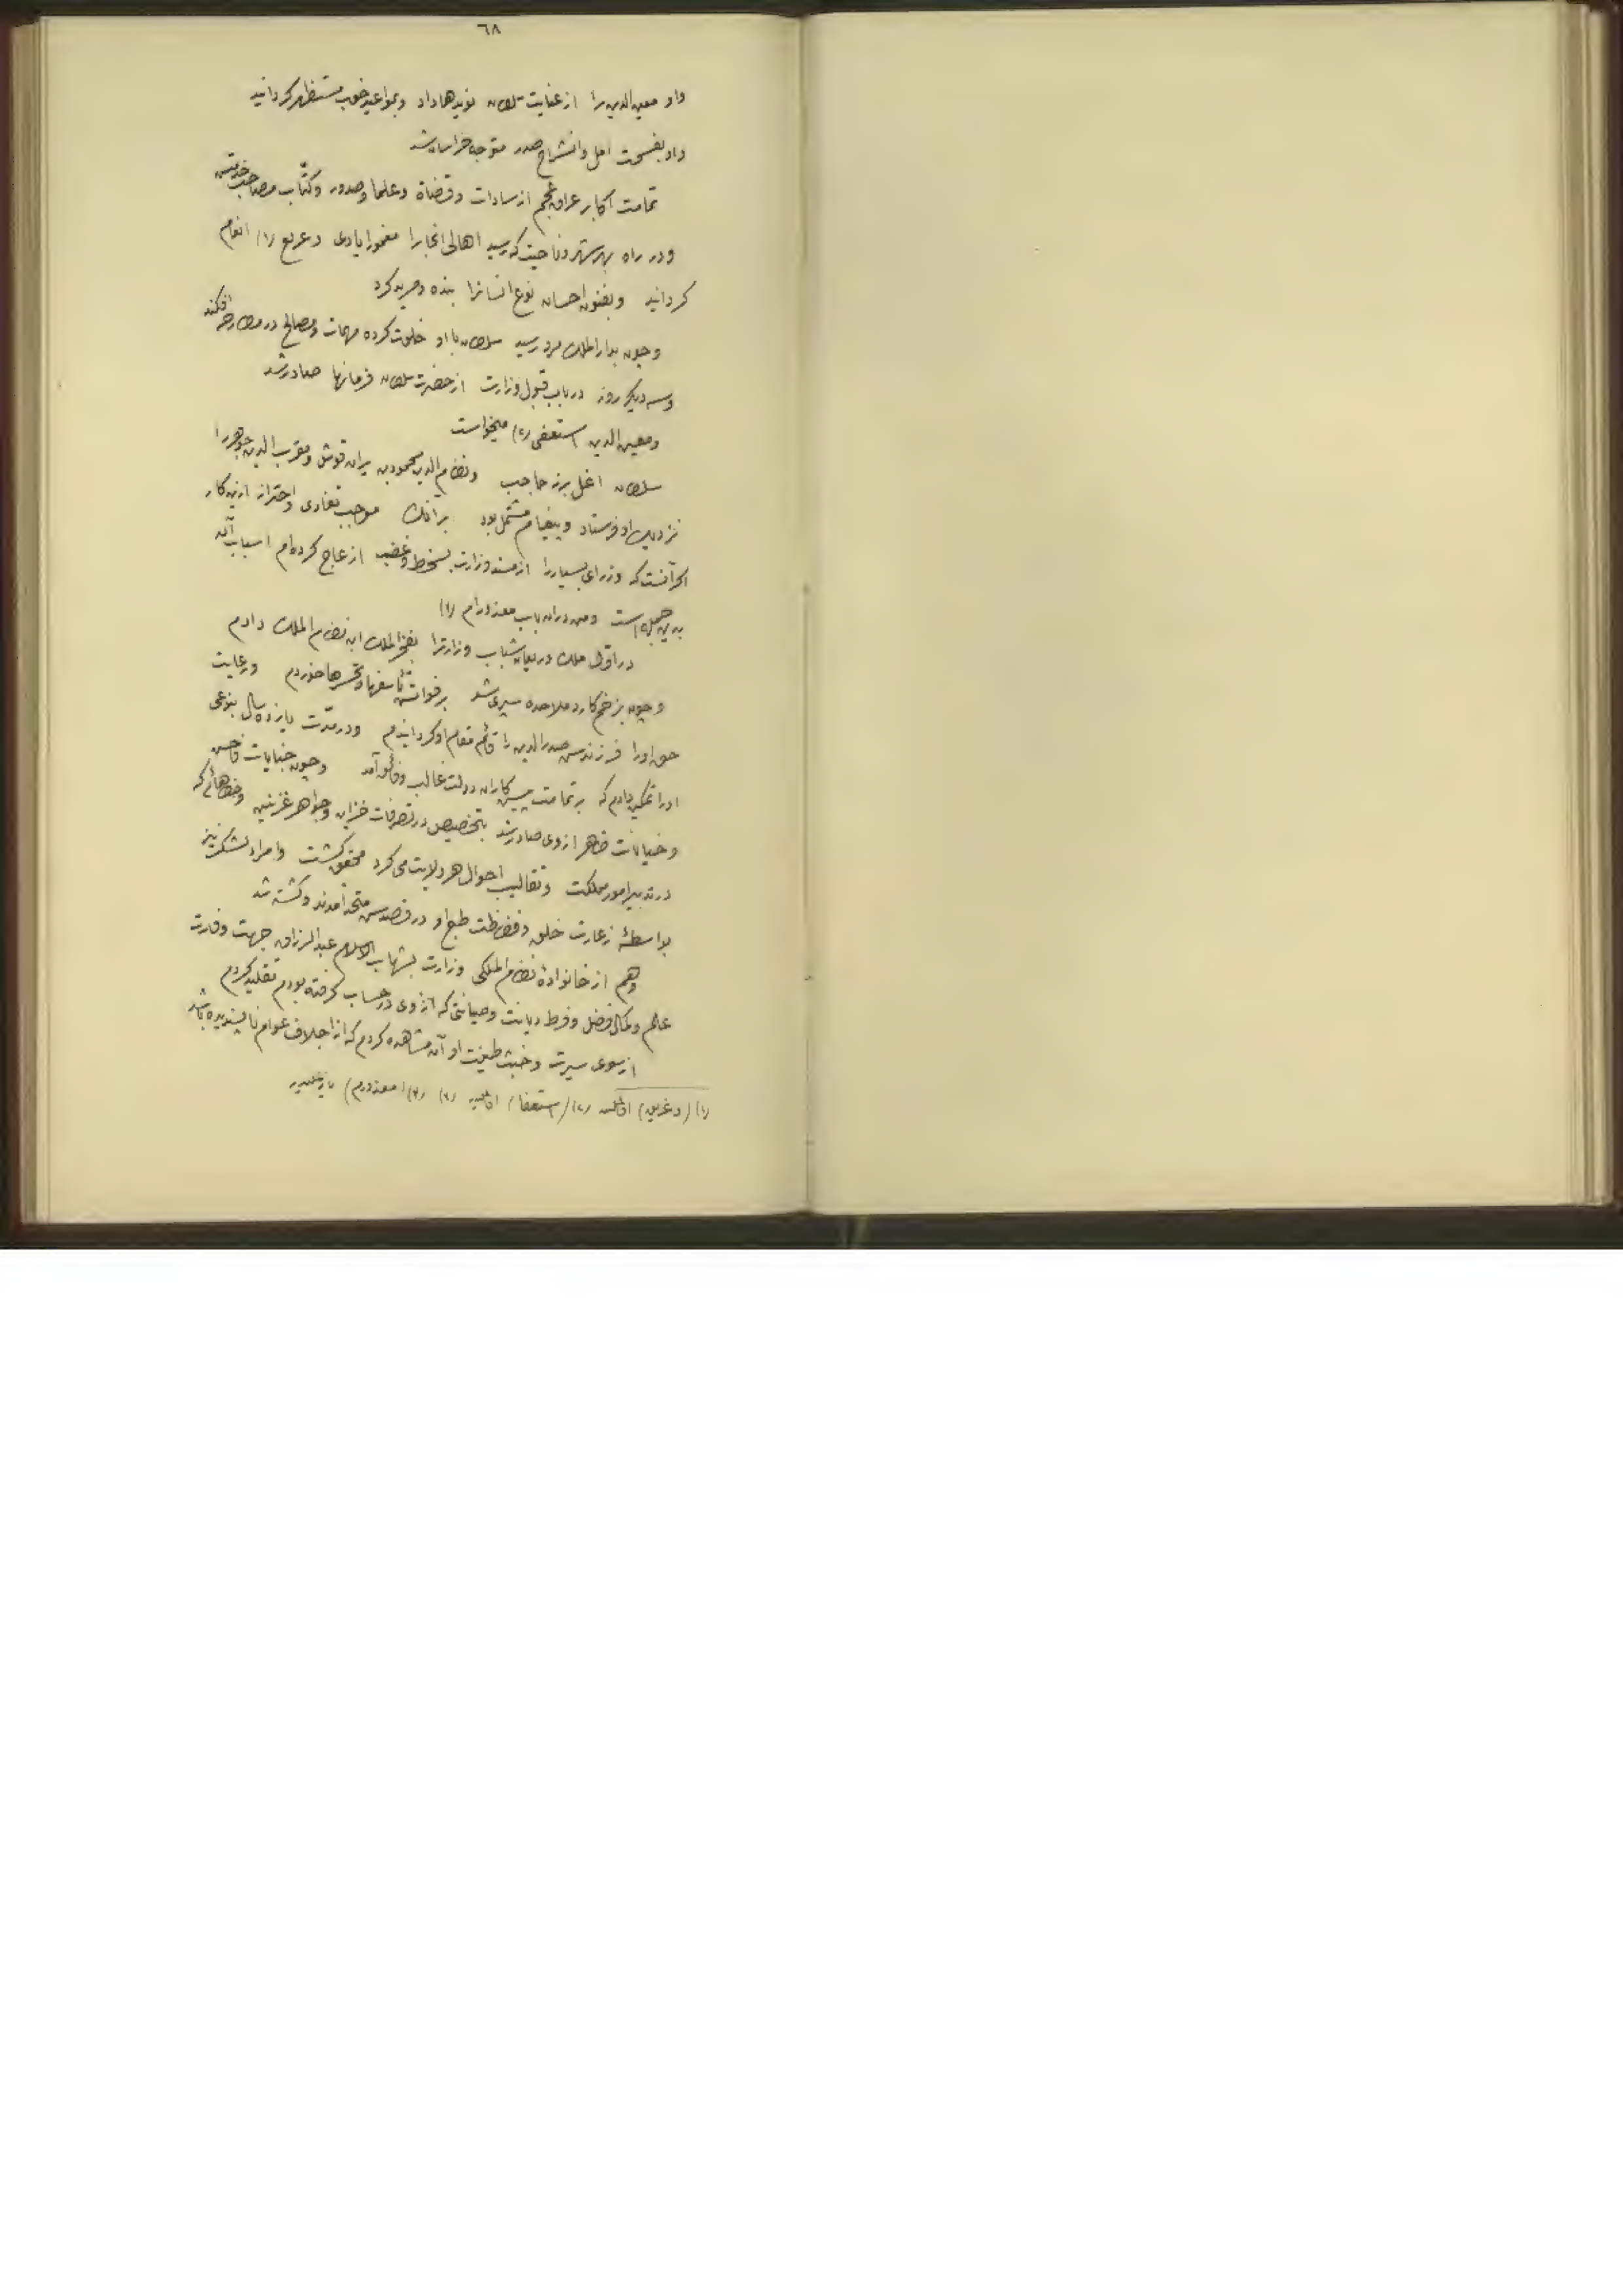 ٦٨
داد معین‌الدین را از عنایت سلطان نویدها داد و بمواعید خوب مستظهر گردانید
داد بفسحت امل و انشراح صدر متوجه خراسان شد
تمامت اکابر عراق عجم از سادات و قضاة و علما و صدور و کتّاب مصاحب خدمتش
و در راه بهر شهر و ناحیت که رسید اهالی آنجا را مغمور ایادی و عریع (١) انعام
گردانید و بفنون احسان نوع انسانرا بنده و مرید کرد
و چون بدار الملک مرو رسید سلطان با او خلوت کرده مهمات و مصالح در مطارحه افکند
و سه دیگر روز در باب قبول وزارت از حضرت سلطان فرمانها صادر شد
و معین الدین استعفی (٢) میخواست
سلطان اغل برز حاجب و نظام الدین محمود بن یرانقوش و مقرب الدین جوهر را
نزدیک او فرستاد و پیغام مشتمل بود برآنک موجب تفادی و احتراز ازین کار
اگر آنست که وزرای بسیار را از مسند وزارت بسخط و غضب ازعاج کرده‌ام اسباب آن
بدین جمله است و من در آن باب معذورام (٣)
در اوّل ملک و ریعان شباب وزارترا بفخر الملک ابن نظام الملک دادم
و چون بزخم کارد ملاحده سپری شد بر فواتش تأسفها و تحسرها خوردم و رعایت
حق او را فرزندش صدر الدین را قائم مقام او گردانیدم و در مدّت یازده سال بنوعی
او را تمکین دادم که بر تمامت پیشکاران دولت غالب و فائق آمد و چون جنایات فاحش
و خیانات ظاهر از وی صادر شد بتخصیص در تصرفات خزاین و جواهر غزنین و خطاهائی که
در تدبیر امور مملکت و تقالیب احوال هر ولایت می کرد محقق گشت و امراء لشکر نیز
بواسطهٔ زعارت خلق و فظاظت طبع او در قصدش متحد آمدند و کشته شد
و هم از خانوادهٔ نظام الملکی وزارت بشهاب الاسلام عبد الرزاق جهت وفارت
علم و کمال فضل و فرط دیانت و صیانتی که از وی در حساب گرفته بودم تقلید کردم
از سوی سیرت و خبث طینت او آن مشاهده کردم که از اجلاف عوام ناپسندیده باشد
(١) (و غریق) (٢) (استعفا) (٣) (معذورم)